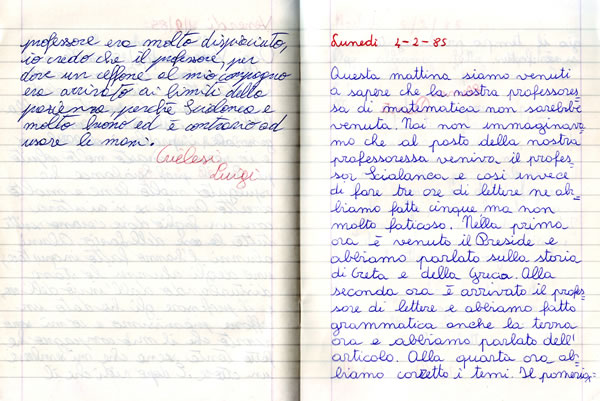 professore era molto dispiaciuto,
io credo che il professore, per
dare un ceffone al mio compagno
era arrivato ai limiti della
pazienza, perché Scialanca e
molto buono ed è contrario ad
usare le mani.
Luigi
Lunedi 4-2-85
Questa mattina siamo venuti
a sapere che la nostra professores=
sa di matematica non sarebbe
venuta. Noi non immaginava=
mo che al posto della nostra
professoressa veniva il profes=
sor Scialanca e così invece
di fare tre ore di lettere ne ab=
biamo fatte cinque ma non
molto faticoso. Nella prima
ora è venuto il Preside e
abbiamo parlato sulla storia
di Creta e della Grecia. Alla
seconda ora è arrivato il profes=
sore di lettere e abbiamo fatto
grammatica anche la terza
ora e abbiamo parlato dell'
articolo. Alla quarta ora ab=
biamo corretto i temi. Il pomerig=